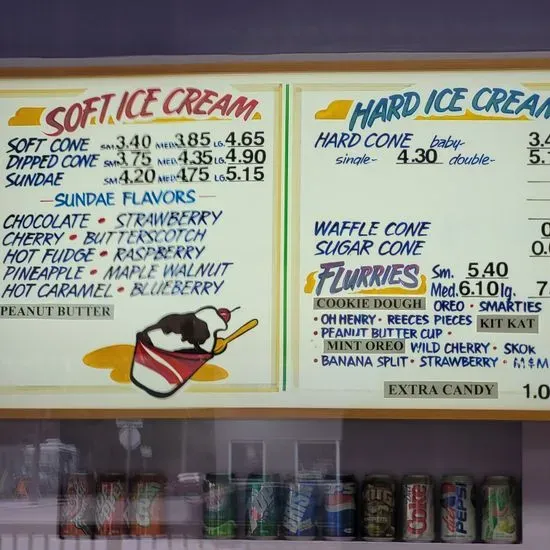 SOFT ICE CREAM
SOFT CONE SM. 3.40 MED. 3.85 LG. 4.65
DIPPED CONE SM. 3.75 MED. 4.35 LG. 4.90
SUNDAE SM. 4.20 MED. 4.75 LG. 5.15
— SUNDAE FLAVORS —
CHOCOLATE • STRAWBERRY
CHERRY • BUTTERSCOTCH
HOT FUDGE • RASPBERRY
PINEAPPLE • MAPLE WALNUT
HOT CARAMEL • BLUEBERRY
PEANUT BUTTER
HARD ICE CREAM
HARD CONE baby- 3.4
single- 4.30 double- 5.
WAFFLE CONE 0
SUGAR CONE 0.
FLURRIES Sm. 5.40
Med. 6.10 lg. 7
COOKIE DOUGH OREO • SMARTIES
• OH HENRY • REECES PIECES KIT KAT
• PEANUT BUTTER CUP •
MINT OREO WILD CHERRY • SKOR
• BANANA SPLIT • STRAWBERRY • M&M
EXTRA CANDY 1.0
Coke
PEPSI